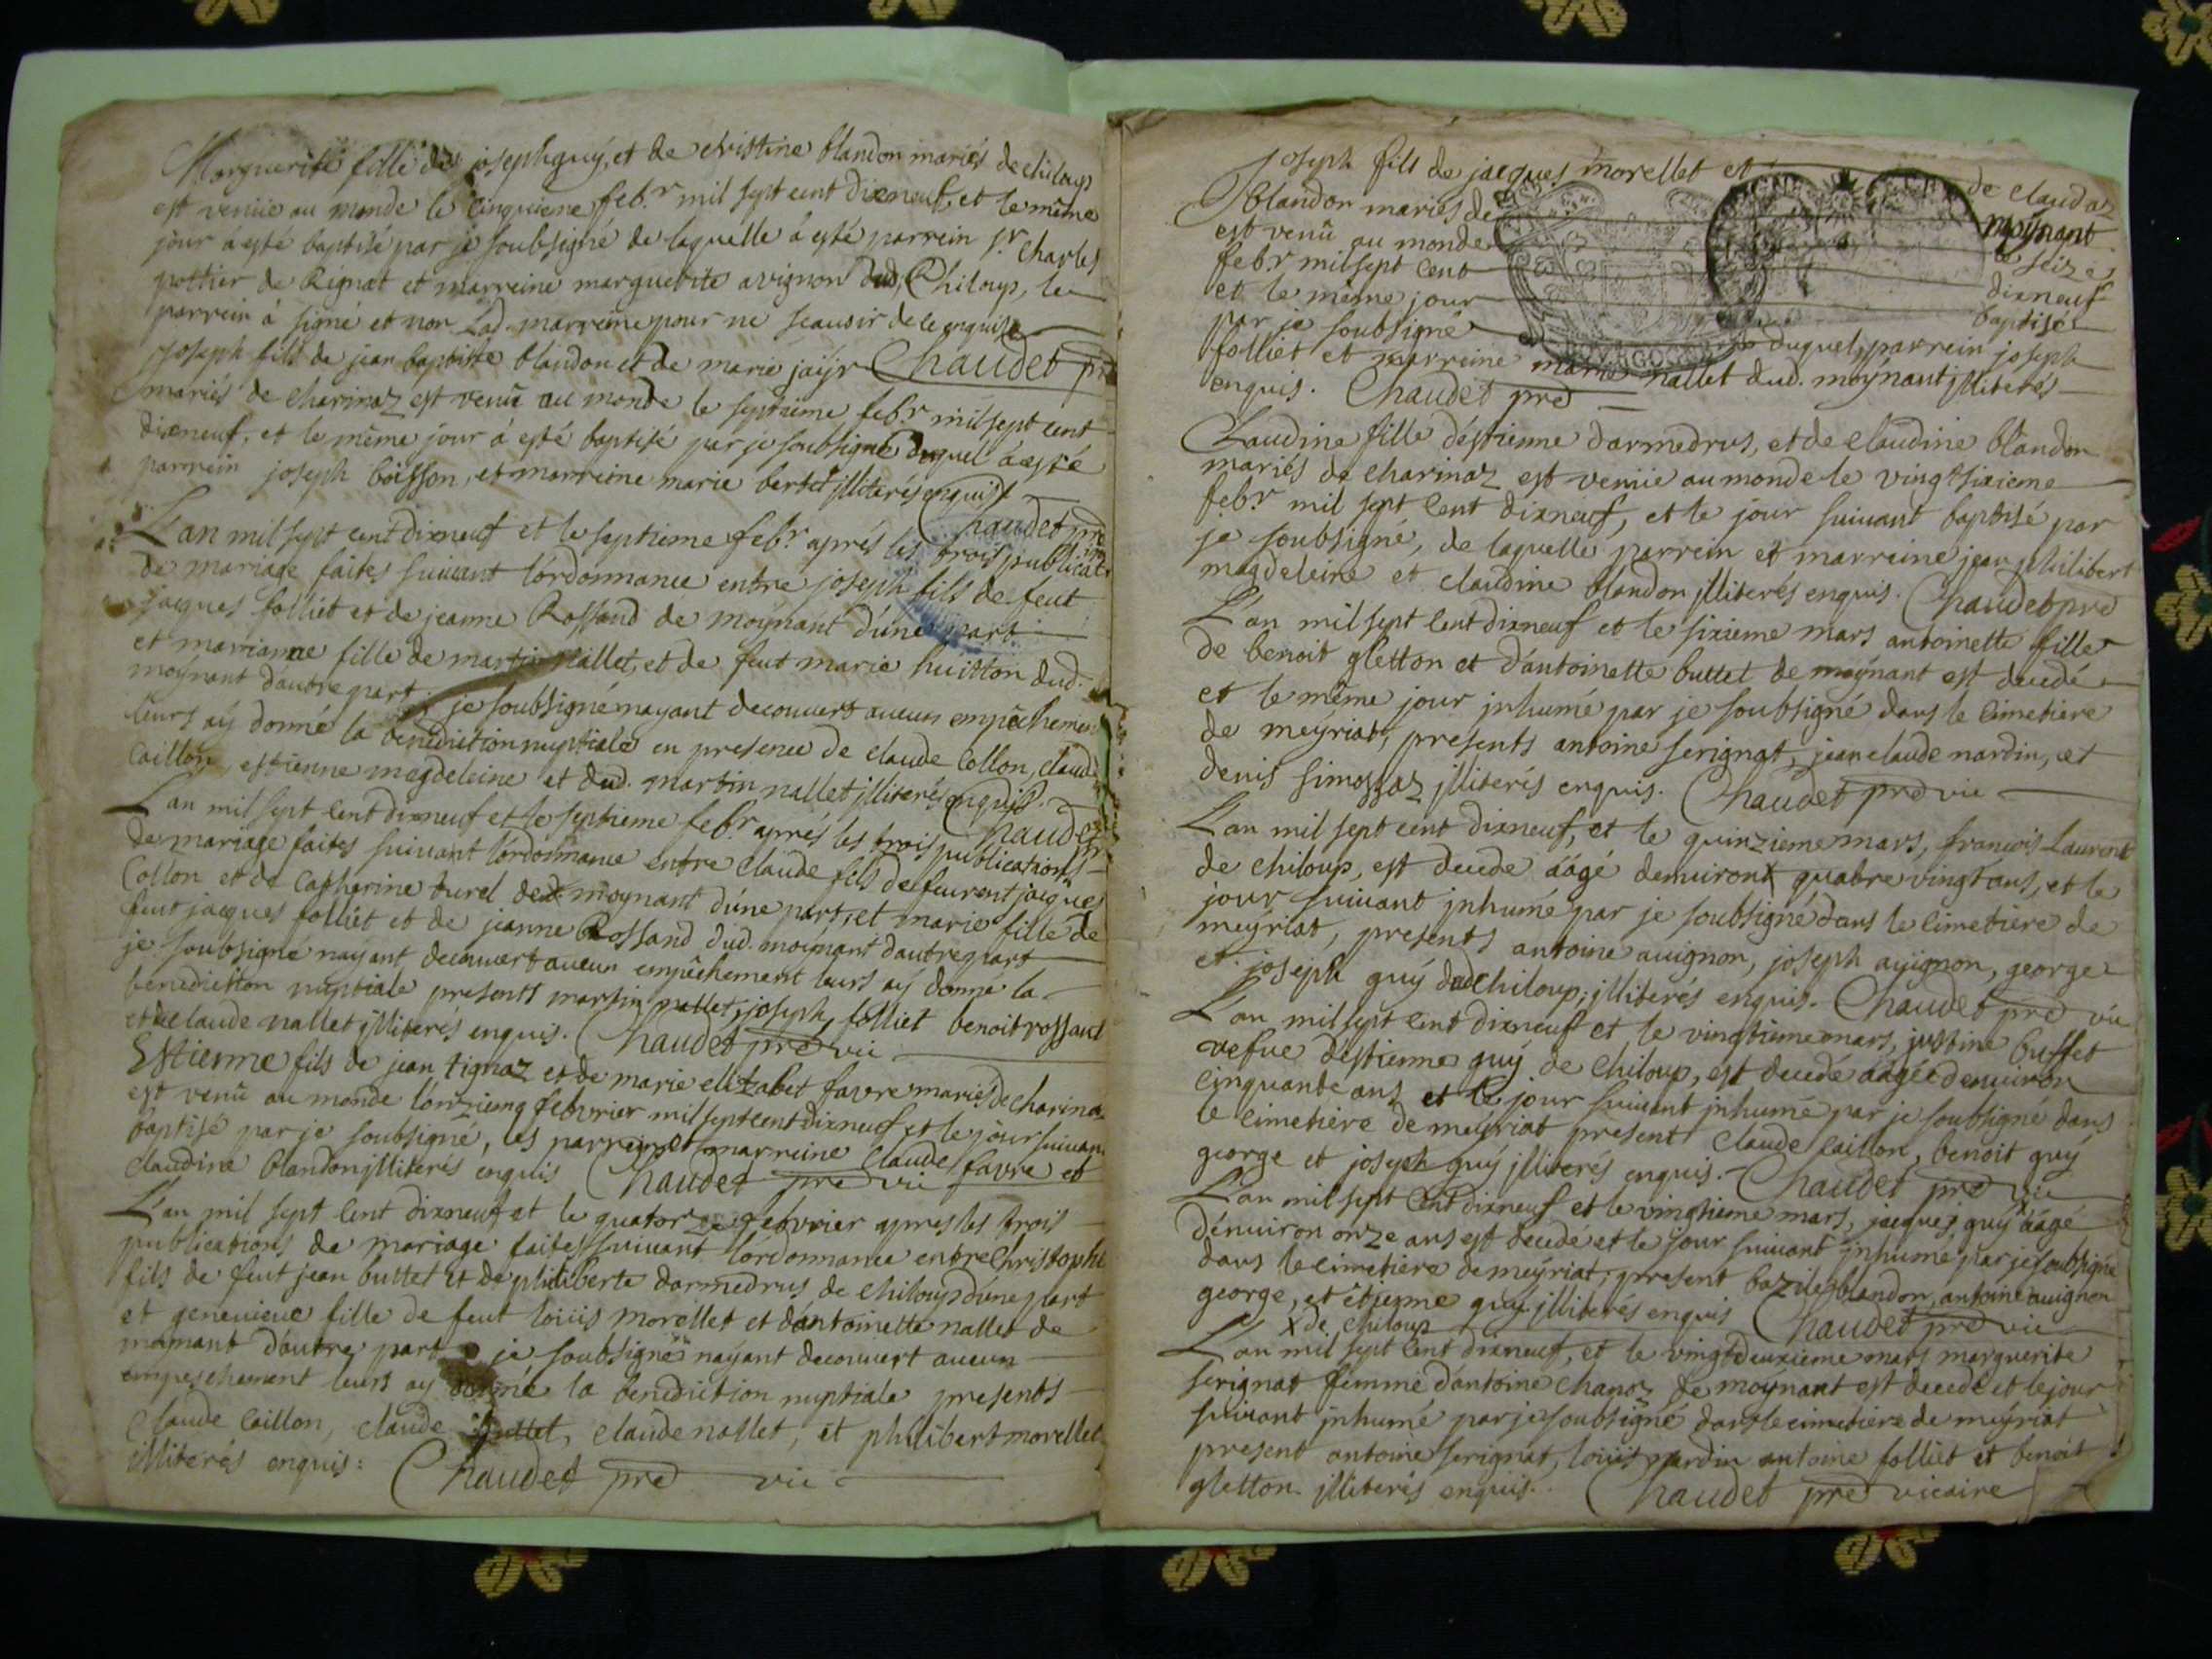 Marguerite fille de joseph guÿ, et de christine blandon mariés de chiloup
est venüe au monde le cinquieme feb.r mil sept cent dixneuf, et le même
jour á esté baptisé par je soubsigné de laquelle á esté parrein s.r Charles
pottier de Rignat et marreine marguerite avignon dud. Chiloup, le
parrein á signé et non Lad. marreine pour ne scauoir de le enquise
Chaudet pre
joseph fils de jean baptiste blandon et de marie jaÿr
mariés de charinaz est venü au monde le septieme feb.r mil sept cent
dixneuf, et le même jour á esté baptisé par je soubsigné duquel á esté
parrein joseph boisson, et marreine marie bertet jlliterés enquis
Chaudet pre
L'an mil sept cent dixneuf et le septieme feb.r aprés les trois publicat.
de mariage faites suiuant l'ordonnance entre joseph fils de feut
jacques folliet et de jeanne Rossand de moÿnant d'une part
et marianne fille de martin nallet, et de feut marie huitton dud.
moÿnant d'autre part, je soubsigné nayant decouuert aucun empêchement
leurs aÿ donné la benediction nuptiale en presence de claude Collon, claude
Caillon, estienne magdeleine et dud. martin nallet jlliterés enquis.
Chaudet pr
L'an mil sept cent dixneuf et le septieme feb.r aprés les trois publications
de mariage faites suiuant l'ordonnance entre claude fils de feurent jacques
Collon et de Catherine burel de moynant d'une part, et marie fille de
feut jacques folliet et de jeanne Rossand dud. moÿnant d'autre part
je soubsigné nayant decouuert aucun empêchement leurs aÿ donné la
benediction nuptiale presents martin nallet, joseph folliet benoit rossand
et claude nallet jlliterés enquis. Chaudet pre vic
Estienne fils de jean tignaz et de marie elizabet favre mariés de charinaz
est venü au monde l'onzieme febvrier mil sept cent dixneuf et le jour suiuant
baptisé par je soubsigné, les parrein et marreine claude favre et
claudine blandon jlliterés enquis Chaudet pre vic
L'an mil sept cent dixneuf et le quatorze febvrier apres les trois
publications de mariage faites suiuant l'ordonnance entre Christophe
fils de feut jean buttet et de philiberte darmedrus de chiloup d'une part
et geneuieue fille de feut loüis morellet et d'antoinette nallet de
moÿnant d'autre part je soubsigné nayant decouuert aucun
empeschement leurs aÿ donné la benediction nuptiale presents
Claude Caillon, claude buttet, claude nallet, et philibert morellet
illiterés enquis: Chaudet pre vic
joseph fils de jacques morellet et de claudaz
blandon mariés de moÿnant
est venü au monde le seize
feb.r mil sept cent dixneuf
et le même jour baptisé
par je soubsigné duquel parrein joseph
folliet et marreine marie nallet dud. moÿnant jlliterés
enquis. Chaudet pre
Claudine fille d'estienne darmedrus, et de claudine blandon
mariés de charinaz est venüe au monde le vingtsixieme
feb.r mil sept cent dixneuf, et le jour suiuant baptisé par
je soubsigné, de laquelle parrein et marreine jean philibert
magdeleine et claudine blandon jlliterés enquis. Chaudet pre
L'an mil sept cent dixneuf et le sixieme mars antoinette fille
de benoit gletton et d'antoinette buttet de moÿnant est decedé
et le même jour jnhumé par je soubsigné dans le cimetiere
de meÿriat, presents antoine serignat, jean claude nardin, et
denis simossaz jlliterés enquis. Chaudet pre vic
L'an mil sept cent dixneuf, et le quinzieme mars, francois Laurent
de chiloup, est decede áagé denuiront quatre vingt ans, et le
jour suiuant jnhumé par je soubsigné dans le cimetiere de
meÿriat, presents antoine auignon, joseph auignon, george
et joseph guÿ dud chiloup, jlliterés enquis. Chaudet pre vic
L'an mil sept cent dixneuf et le vingtieme mars, justine buffet
vefue d'estienne guÿ de chiloup, est decedé áagée denuiron
cinquante ans et le jour suiuant jnhumé par je soubsigné dans
le cimetiere de meÿriat present claude caillon, benoit guÿ
george et joseph guÿ jlliterés enquis. Chaudet pre vic
L'an mil sept cent dixneuf et le vingtieme mars, jacques guÿ x áagé
dénuiron onze ans est decédé et le jour suiuant jnhumé par je soubsigné
dans le cimetiere de meÿriat, present bazile blandon, antoine auignon
george, et étienne guÿ jlliterés enquis Chaudet pre vic
x de chiloup
L'an mil sept cent dixneuf, et le vingtdeuxieme mars marguerite
serignat femme d'antoine chanoz de moÿnant est decede et le jour
suiuant jnhumé par je soubsigné dans le cimetiere de meÿriat
present antoine serignat, loüis nardin antoine folliet et benoit
gletton jlliterés enquis. Chaudet pre vicaire